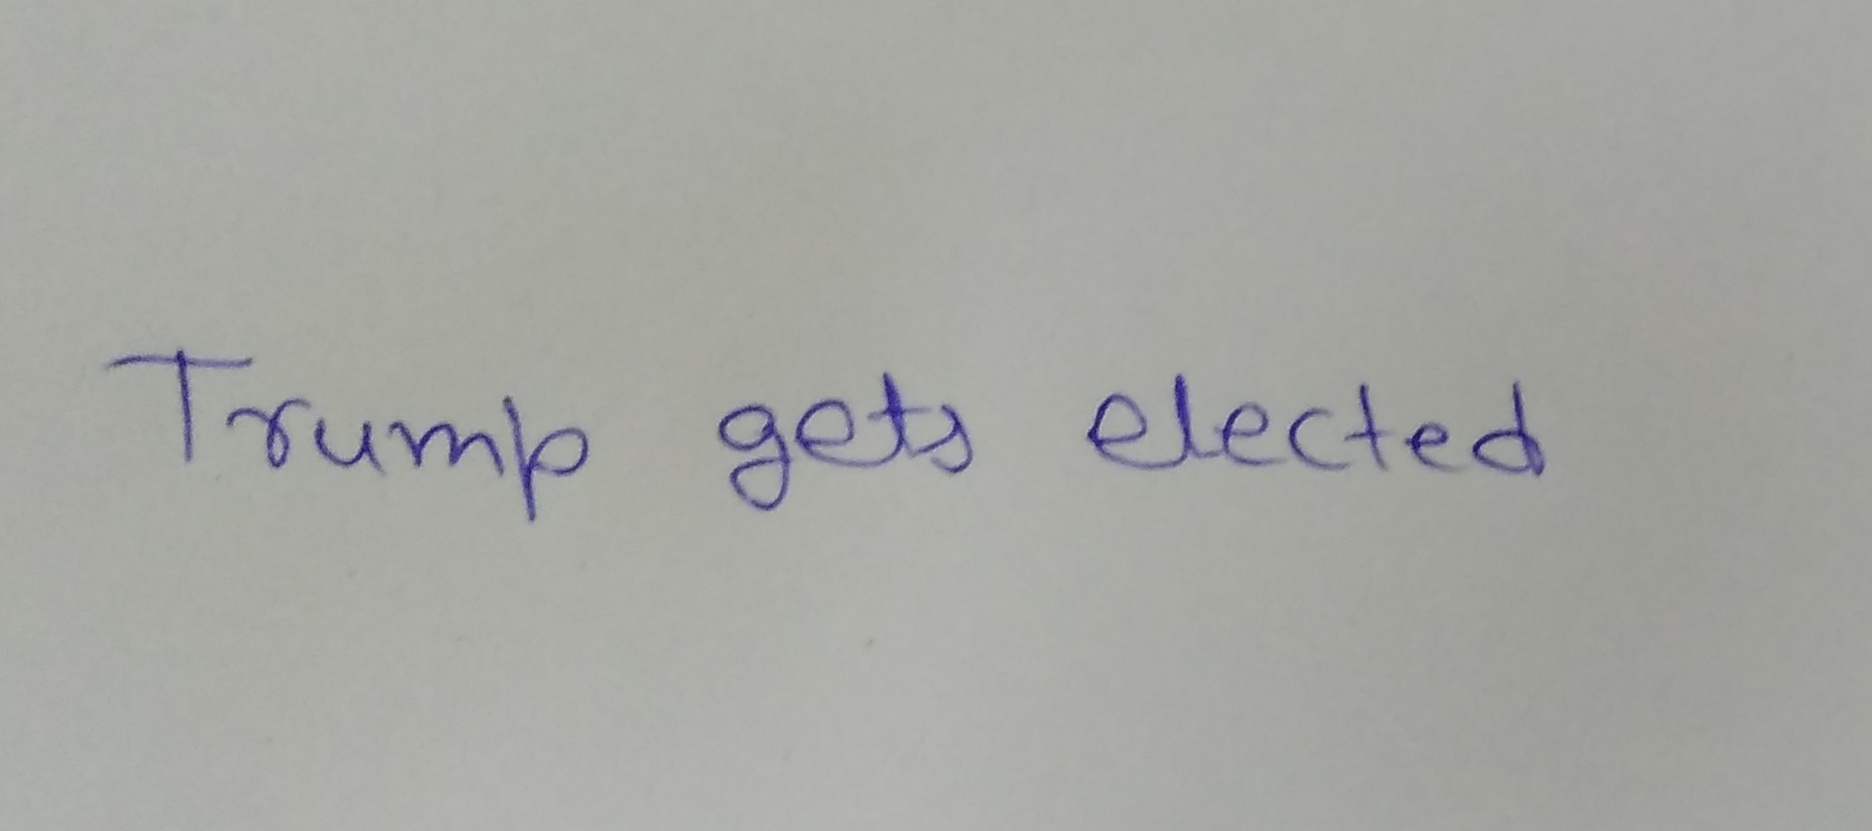 Trump gets elected